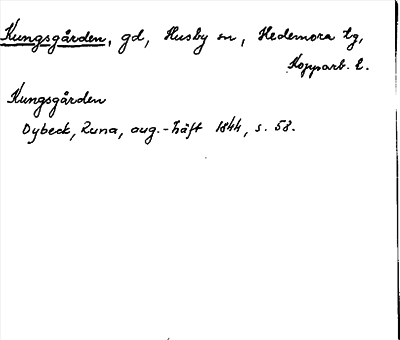 Kungsgården, gd, Husby sn, Hedemora tg,
Kopparb. l.
Kungsgården
Dybeck, Runa, aug.-häft 1844, s. 58.